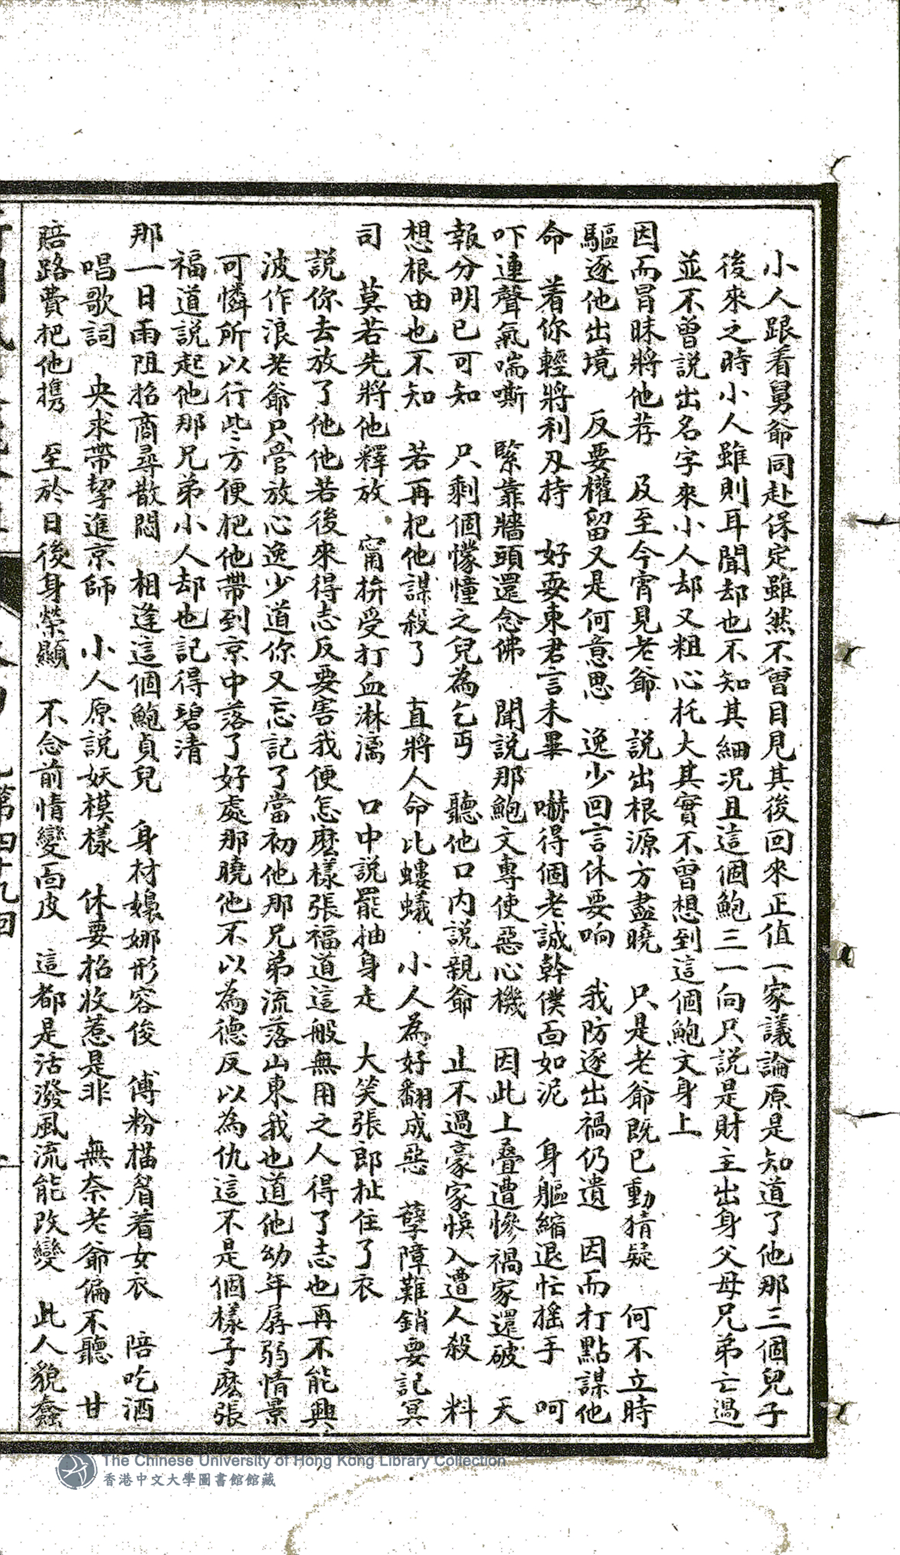 小人跟着舅爺同赴保定雖然不曾目見其後回來正值一家議論原是知道了他那三個兒子
後來之時小人雖則耳聞却也不知其細況且這個鮑三一向只說是財主出身父母兄弟亡過
並不曾説出名字來小人却又粗心托大其實不曾想到這個鮑文身上
因而冒昧將他荐　及至今宵見老爺　說出根源方盡曉　只是老爺既已動猜疑　何不立時
驅逐他出境　反要權留又是何意思　逸少回言休要响　我防逐出禍仍遺　因而打點謀他
命　着你輕將利刄持　好耍東君言未畢　嚇得個老誠幹僕面如泥　身軀縮退忙搖手　呵
吓連聲氣喘嘶　緊靠牆頭還念佛　聞説那鮑文專使惡心機　因此上叠遭慘禍家還破　天
報分明已可知　只剩個懞憧之兒為乞丐　聽他口内説親爺　止不過豪家悞入遭人殺　料
想根由也不知　若再把他謀殺了　直將人命比螻蟻　小人為好翻成惡　孽障難銷要記冥
司　莫若先將他釋放　甯拚受打血淋漓　口中説罷抽身走　大笑張郎扯住了衣
説你去放了他他若後來得志反要害我便怎麽樣張福道這般無用之人得了志也再不能興
波作浪老爺只管放心逸少道你又忘記了當初他那兄弟流落山東我也道他幼年孱弱情景
可憐所以行些方便把他帶到京中落了好處那曉他不以為德反以為仇這不是個樣子麽張
福道説起他那兄弟小人却也記得碧清
那一日雨阻招商尋散悶　相逢這個鮑貞兒　身材嬝娜形容俊　傅粉描眉着女衣　陪吃酒
唱歌詞　央求帶挈進京師　小人原説妖模樣　休要招收惹是非　無奈老爺偏不聽　甘
賠路費把他攜　至於日後身榮顯　不念前情變面皮　這都是活潑風流能改變　此人貌蠢
第四十九回
The Chinese University of Hong Kong Library Collection
香港中文大學圖書館館藏